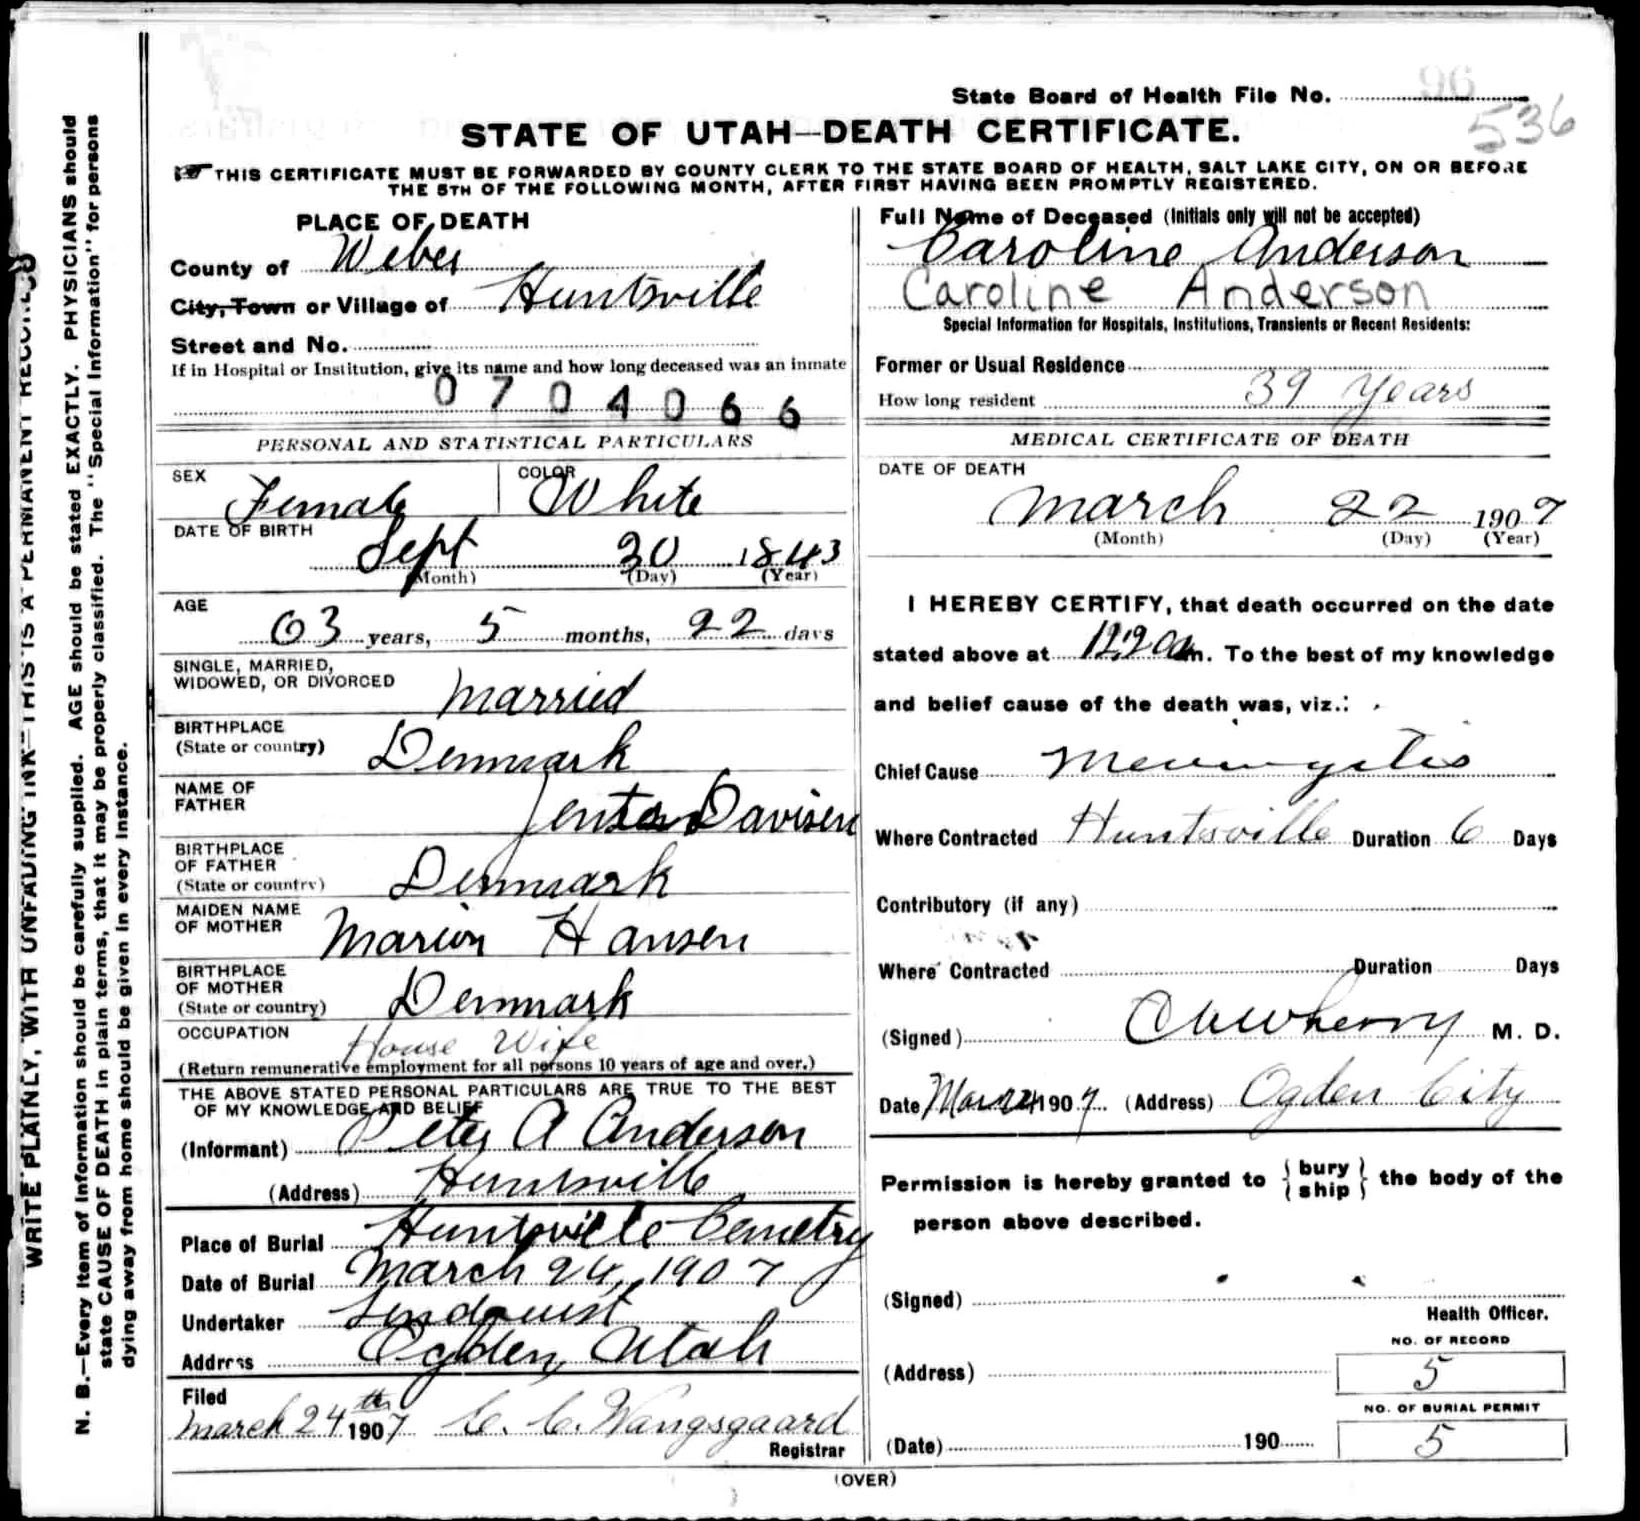 State Board of Health File No. 96
536
STATE OF UTAH—DEATH CERTIFICATE.
THIS CERTIFICATE MUST BE FORWARDED BY COUNTY CLERK TO THE STATE BOARD OF HEALTH, SALT LAKE CITY, ON OR BEFORE
THE 5TH OF THE FOLLOWING MONTH, AFTER FIRST HAVING BEEN PROMPTLY REGISTERED.
WRITE PLAINLY, WITH UNFADING INK—THIS IS A PERMANENT RECORD
N. B.—Every item of information should be carefully supplied. AGE should be stated EXACTLY. PHYSICIANS should
state CAUSE OF DEATH in plain terms, that it may be properly classified. The "Special Information" for persons
dying away from home should be given in every instance.
PLACE OF DEATH
County of Weber
City, Town or Village of Huntsville
Street and No.
If in Hospital or Institution, give its name and how long deceased was an inmate
0704066
PERSONAL AND STATISTICAL PARTICULARS
SEX Female COLOR White
DATE OF BIRTH
Sept 30 1843
(Month) (Day) (Year)
AGE
63 years, 5 months, 22 days
SINGLE, MARRIED,
WIDOWED, OR DIVORCED Married
BIRTHPLACE
(State or country) Denmark
NAME OF
FATHER Davisen
BIRTHPLACE
OF FATHER
(State or country) Denmark
MAIDEN NAME
OF MOTHER Marion Hansen
BIRTHPLACE
OF MOTHER
(State or country) Denmark
OCCUPATION House Wife
(Return remunerative employment for all persons 10 years of age and over.)
THE ABOVE STATED PERSONAL PARTICULARS ARE TRUE TO THE BEST
OF MY KNOWLEDGE AND BELIEF
(Informant) Peter A Anderson
(Address) Huntsville
Place of Burial Huntsville Cemetry
Date of Burial March 24, 1907
Undertaker Lindquist
Address Ogden, Utah
Filed
March 24th 1907 C. C. Wangsgaard
Registrar
Full Name of Deceased (Initials only will not be accepted)
Caroline Anderson
Caroline Anderson
Special Information for Hospitals, Institutions, Transients or Recent Residents:
Former or Usual Residence
How long resident 39 Years
MEDICAL CERTIFICATE OF DEATH
DATE OF DEATH
March 22 1907
(Month) (Day) (Year)
I HEREBY CERTIFY, that death occurred on the date
stated above at m. To the best of my knowledge
and belief cause of the death was, viz.:
Chief Cause Meningitis
Where Contracted Huntsville Duration 6 Days
Contributory (if any)
Where Contracted Duration Days
(Signed) M. D.
Date 1907. (Address) Ogden City
Permission is hereby granted to { bury
ship } the body of the
person above described.
(Signed)
Health Officer.
NO. OF RECORD
(Address) 5
NO. OF BURIAL PERMIT
(Date) 190 5
(OVER)